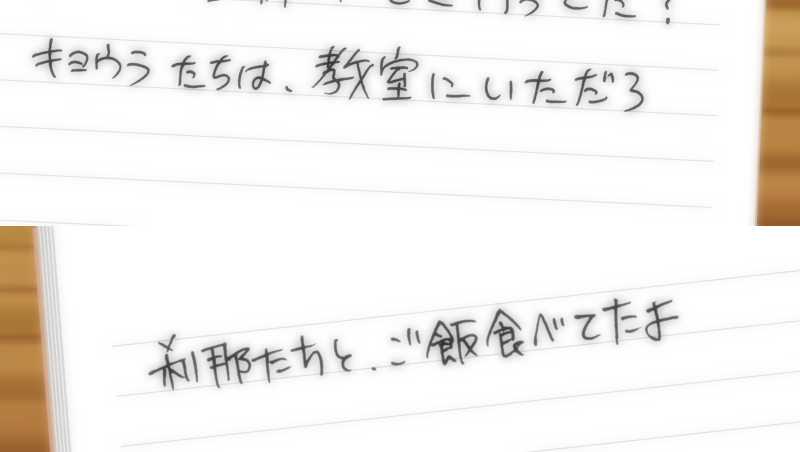 キョウラたちは、教室にいただろ
刹那たちと、ご飯食べてたよ